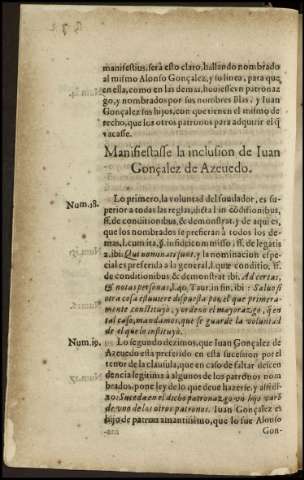 manifestius, será esto claro, hallando nombrado
al mismo Alonso Gonçalez, y su linea, para que
en ella, como en las demas, huuiesse en patronaz
go, y nombrados por sus nombres Blas, y Iuan
Gonçalez sus hijos, con que tienen el mismo de
recho, que los otros patronos para adquirir el q̃
vacasse.
Manifiestasse la inclusion de Iuan
Gonçalez de Azeuedo.
Num. 18.
Lo primero, la voluntad del fundador, es su-
perior a todas las reglas, dicta l. in cõditionibus,
ff. de conditionibus, & demonstrat. y de aqui es,
que los nombrados se prefieran à todos los de-
mas, l. cum ita, §. in fideicommisso, ff. de legatis
2. ibi: Qui nominati sunt, y la nominacion espe-
cial es preferida a la general, l. quæ conditio, ff.
de conditionibus, & demonstrat. ibi. Ad certas,
& notas personas, l. 40. Taur. in fin. ibi: Saluo si
otra cosa estuuiere dispuesta por el que primera-
mente constituyò, y ordenò el mayorazgo, q̃ en
tal caso, mandamos, que se guarde la voluntad
de el que lo instituyò.
Num. 19.
Lo segundo dezimos, que Iuan Gonçalez de
Azeuedo està preferido en esta sucession por el
tenor de la clausula, que en caso de faltar descen
dencia legitima à algunos de los patronos nom
brados, pone ley de lo que deue hazerse, y assi di-
ze: Suceda en el dicho patronazgo vn hijo varõ
de vno de los otros patronos. Iuan Gonçalez es
hijo de patron amantissimo, que lo fue Alonso
Gon-